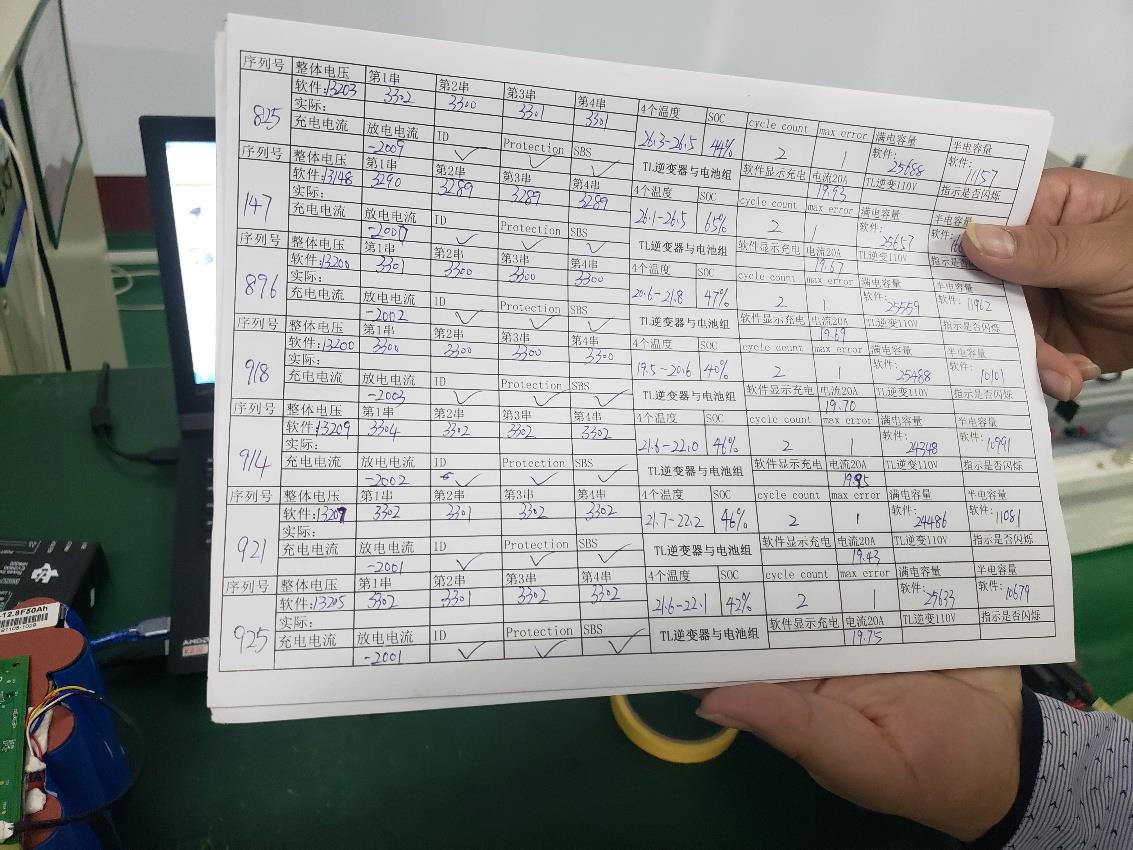 序列号 整体电压 第1串 第2串 第3串 第4串 4个温度 SOC cycle count max error 满电容量 半电容量
825 软件:13203 3302 3300 3301 3301 26.3-26.5 44% 2 1 软件:25688 软件:11157
实际:
充电电流 放电电流 ID Protection SBS TL逆变器与电池组 软件显示充电 电流20A TL逆变110V 指示是否闪烁
-2009 ✓ ✓ ✓ 19.93
序列号 整体电压 第1串 第2串 第3串 第4串 4个温度 SOC cycle count max error 满电容量 半电容量
147 软件:13148 3290 3289 3289 3289 26.1-26.5 65% 2 1 软件:25657 软件:
实际:
充电电流 放电电流 ID Protection SBS TL逆变器与电池组 软件显示充电 电流20A TL逆变110V 指示是否闪烁
✓ ✓ ✓ 19.67
序列号 整体电压 第1串 第2串 第3串 第4串 4个温度 SOC cycle count max error 满电容量
896 软件:13200 3301 3300 3300 3300 20.6-21.8 47% 2 1 软件:25559 软件:11962
实际:
充电电流 放电电流 ID Protection SBS TL逆变器与电池组 软件显示充电 电流20A TL逆变110V 指示是否闪烁
-2002 ✓ ✓ ✓ 19.69
序列号 整体电压 第1串 第2串 第3串 第4串 4个温度 SOC cycle count max error 满电容量 半电容量
918 软件:13200 3300 3300 3300 3300 19.5-20.6 40% 2 1 软件:25488 软件:10101
实际:
充电电流 放电电流 ID Protection SBS TL逆变器与电池组 软件显示充电 电流20A TL逆变110V 指示是否闪烁
-2003 ✓ ✓ ✓ 19.70
序列号 整体电压 第1串 第2串 第3串 第4串 4个温度 SOC cycle count max error 满电容量 半电容量
914 软件:13209 3304 3302 3302 3302 21.6-22.0 46% 2 1 软件:24348 软件:10991
实际:
充电电流 放电电流 ID Protection SBS TL逆变器与电池组 软件显示充电 电流20A TL逆变110V 指示是否闪烁
-2002 ✓ ✓ ✓
序列号 整体电压 第1串 第2串 第3串 第4串 4个温度 SOC cycle count max error 满电容量 半电容量
921 软件:13207 3302 3301 3302 3302 21.7-22.2 46% 2 1 软件:24486 软件:11081
实际:
充电电流 放电电流 ID Protection SBS TL逆变器与电池组 软件显示充电 电流20A TL逆变110V 指示是否闪烁
-2001 ✓ ✓ ✓ 19.43
序列号 整体电压 第1串 第2串 第3串 第4串 4个温度 SOC cycle count max error 满电容量 半电容量
925 软件:13205 3302 3301 3302 3302 21.6-22.1 42% 2 1 软件:25633 软件:10679
实际:
充电电流 放电电流 ID Protection SBS TL逆变器与电池组 软件显示充电 电流20A TL逆变110V 指示是否闪烁
-2001 ✓ ✓ ✓ 19.75
-12.8F50Ah
AMD